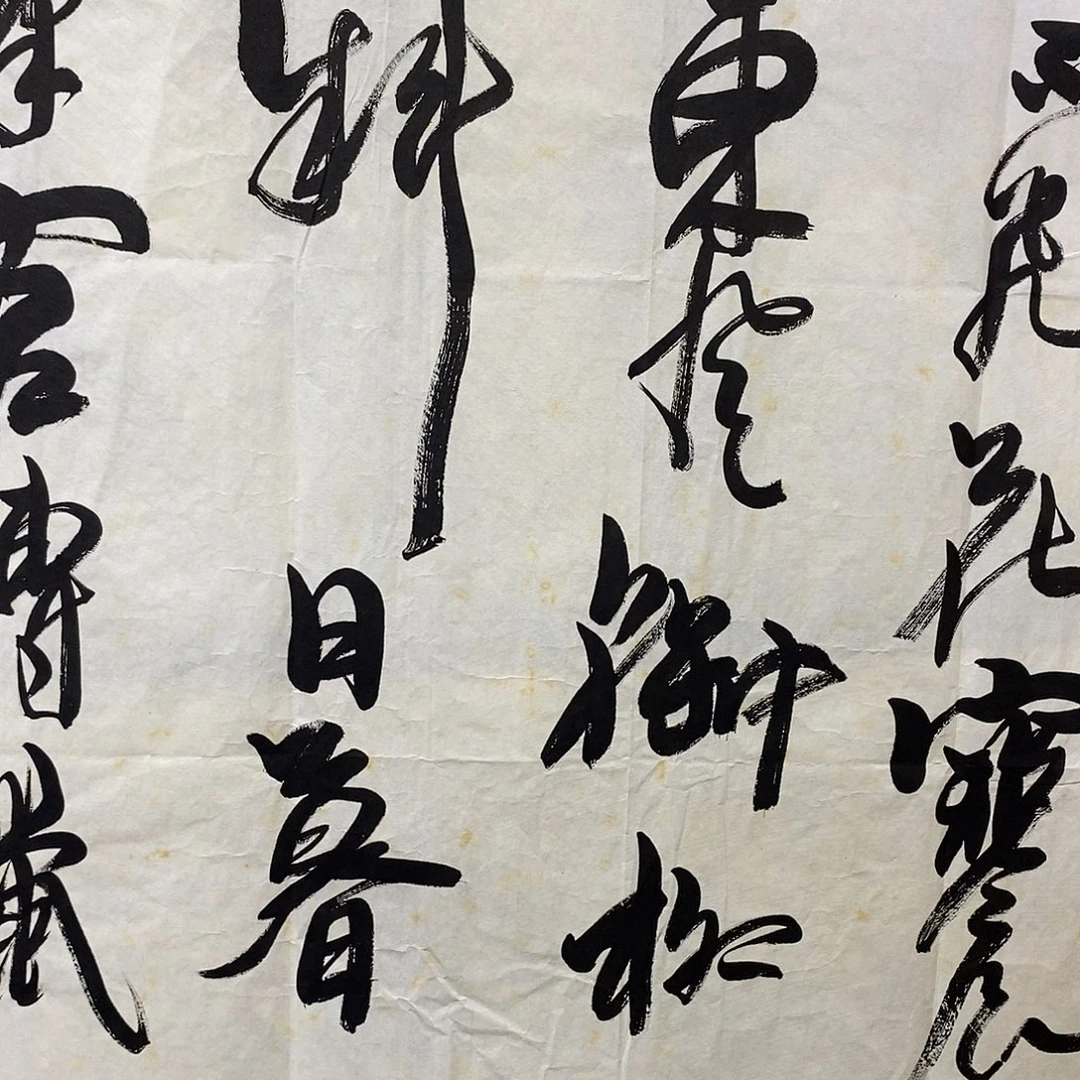 不飛花寒食
東風御柳
斜日暮
漢宮傳蠟